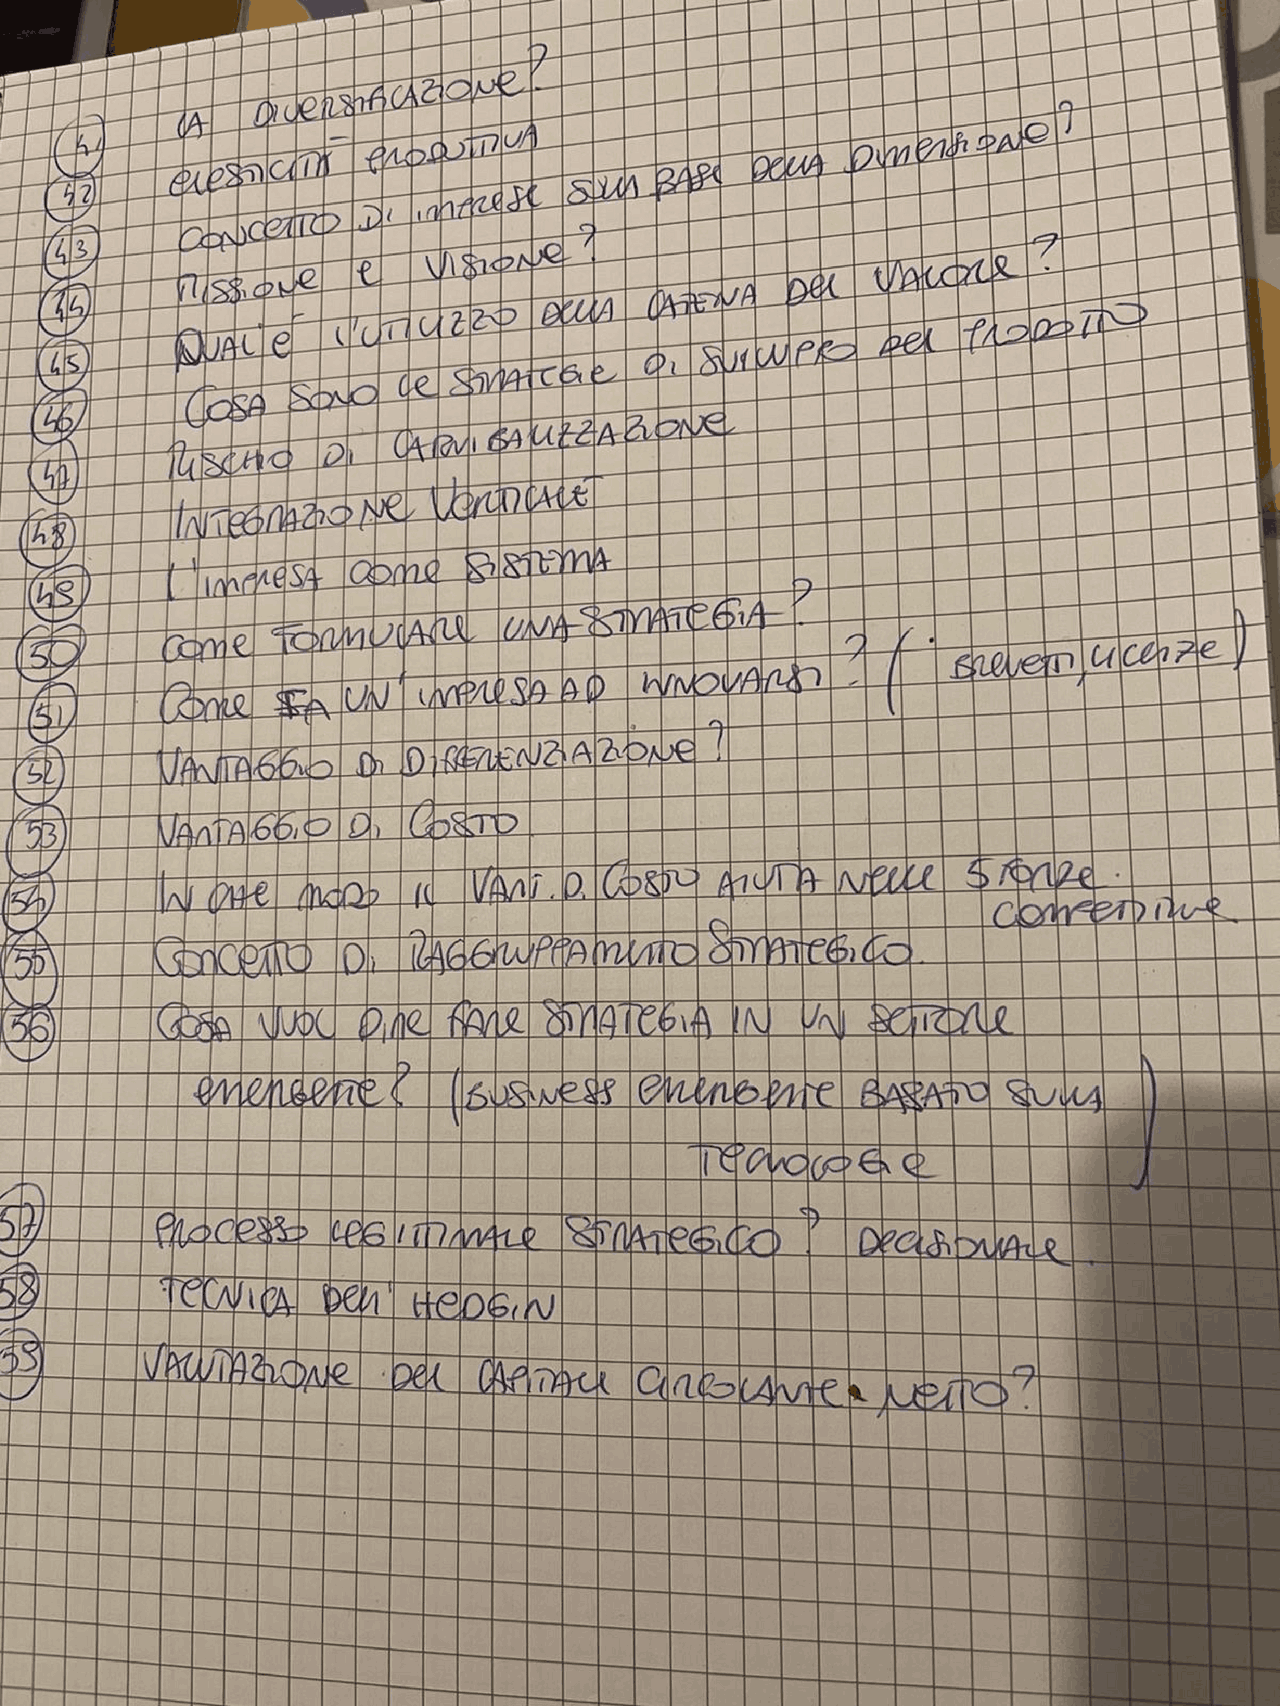 41 LA DIVERSIFICAZIONE?
42 ELASTICITÀ PRODUTTIVA
43 CONCETTO DI IMPRESE SULLA BASE DELLA DIMENSIONE?
44 MISSIONE E VISIONE?
45 QUAL'È L'UTILIZZO DELLA CATENA DEL VALORE?
46 COSA SONO LE STRATEGIE DI SVILUPPO DEL PRODOTTO
47 RISCHIO DI CANNIBALIZZAZIONE
48 INTEGRAZIONE VERTICALE
49 L'IMPRESA COME SISTEMA
50 COME FORMULARE UNA STRATEGIA?
51 COME FA UN'IMPRESA AD INNOVARSI? (BREVETTI, LICENZE)
52 VANTAGGIO DI DIFFERENZIAZIONE?
53 VANTAGGIO DI COSTO
54 IN CHE MODO IL VANT. D. COSTO AIUTA NELLE 5 FORZE.
COMPETITIVE
55 CONCETTO DI RAGGRUPPAMENTO STRATEGICO.
56 COSA VUOL DIRE FARE STRATEGIA IN UN SETTORE
EMERGENTE? (BUSINESS EMERGENTE BASATO SULLA
TECNOLOGIE)
57 PROCESSO STRATEGICO? DECISIONALE.
58 TECNICA DELL'HEDGIN
59 VALUTAZIONE DEL CAPITALE CIRCOLANTE NETTO?